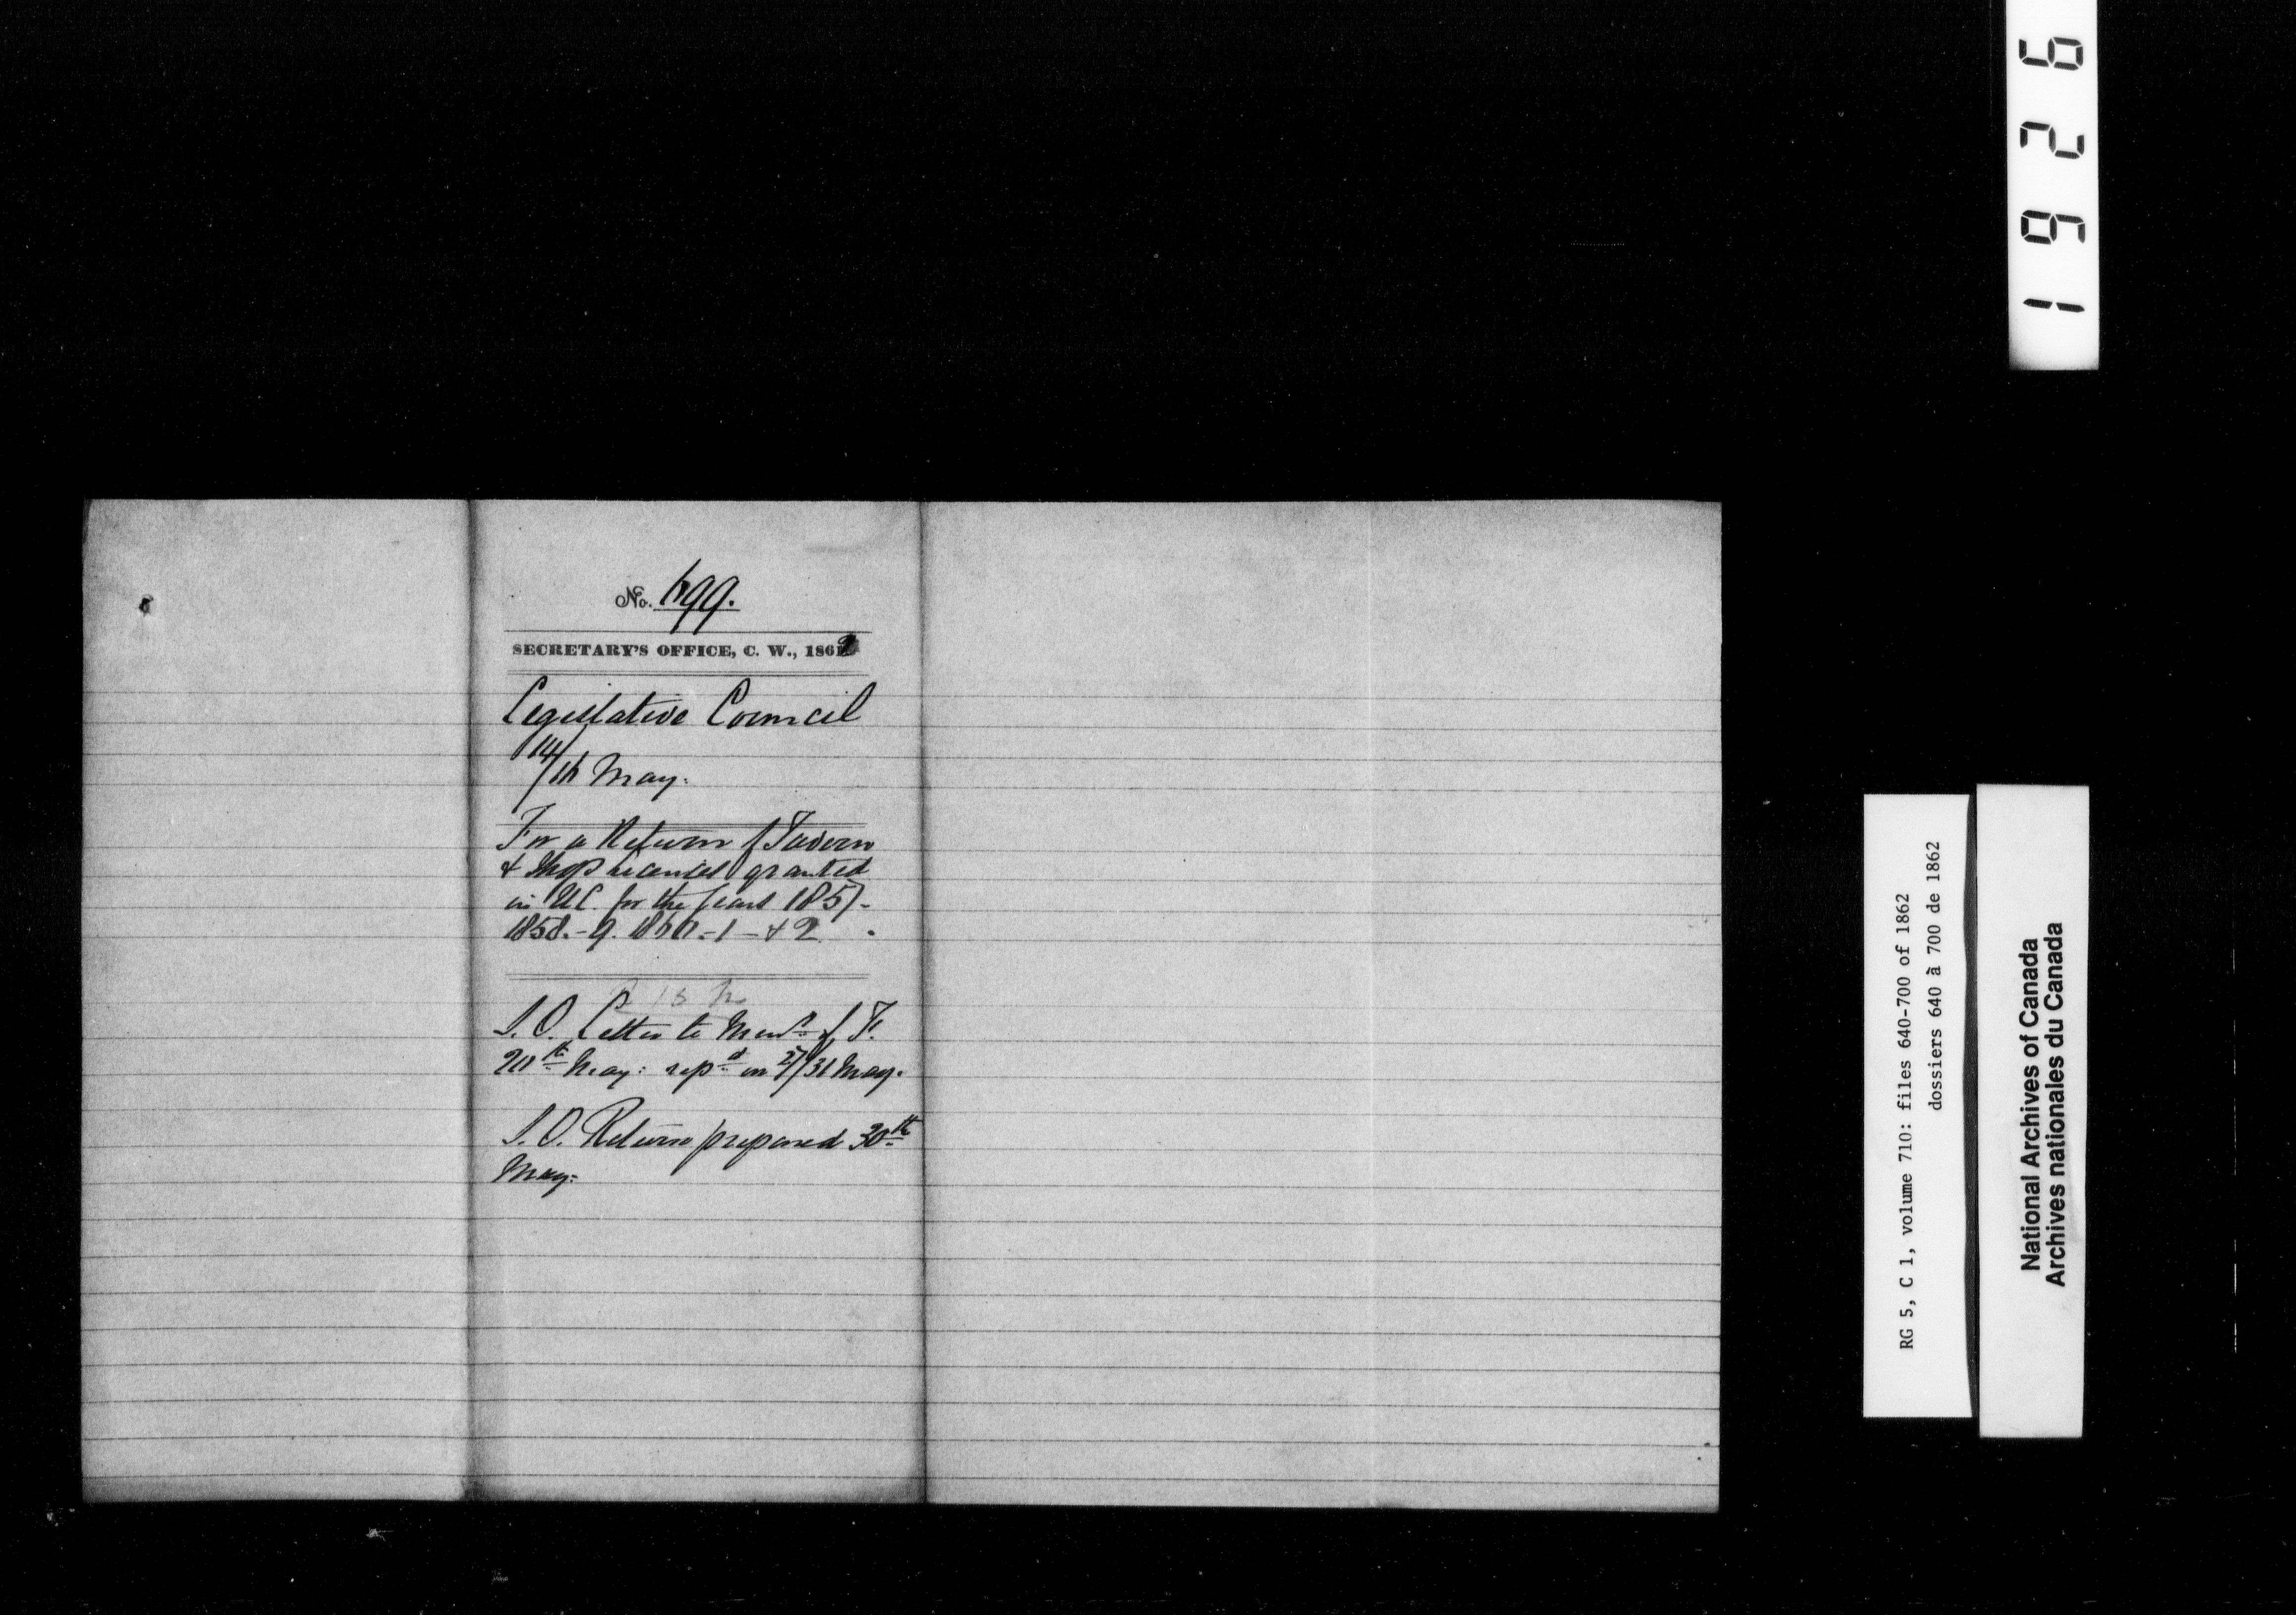 No. 699.
SECRETARY'S OFFICE, C. W., 1862
Legislative Council
14/16 May.
For a Return of Tavern
& Shop Licenses granted
in U.C. for the years 1857-
1858.-9. 1860-1-&2.
S. O. Letter to Min.r of F.
20th May: rep.d on 27/31 May.
S. O. Return prepared 30th
May.
1926
RG 5, C 1, volume 710: files 640-700 of 1862
dossiers 640 à 700 de 1862
National Archives of Canada
Archives nationales du Canada